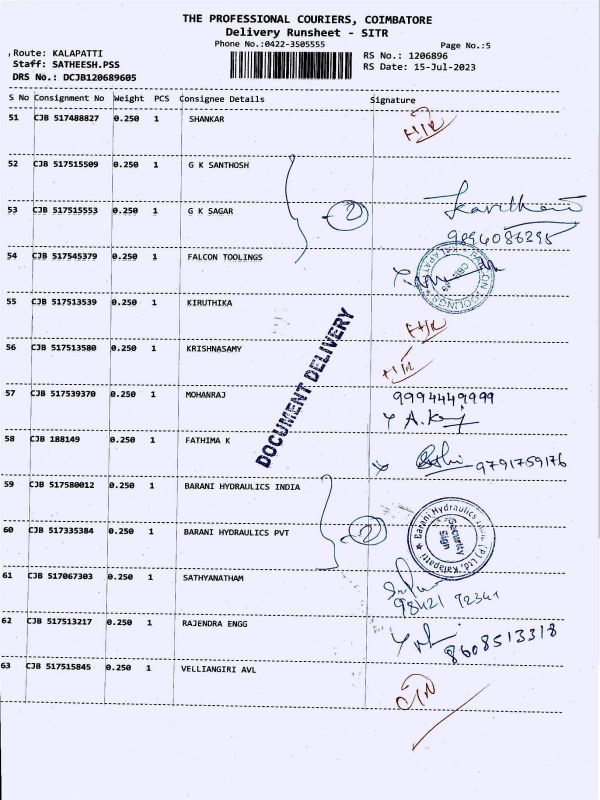 THE PROFESSIONAL COURIERS, COIMBATORE
Delivery Runsheet - SITR
Phone No.:0422-3505555
Page No.:5
Route: KALAPATTI
RS No.: 1206896
Staff: SATHEESH.PSS
RS Date: 15-Jul-2023
DRS No.: DCJB120689605
S No Consignment No Weight PCS Consignee Details Signature
51 CJB 517488827 0.250 1 SHANKAR
52 CJB 517515509 0.250 1 G K SANTHOSH
53 CJB 517515553 0.250 1 G K SAGAR
2
54 CJB 517545379 0.250 1 FALCON TOOLINGS
55 CJB 517513539 0.250 1 KIRUTHIKA
56 CJB 517513580 0.250 1 KRISHNASAMY
DOCUMENT DELIVERY
57 CJB 517539370 0.250 1 MOHANRAJ 9994449999
58 CJB 188149 0.250 1 FATHIMA K 9791759176
59 CJB 517580012 0.250 1 BARANI HYDRAULICS INDIA
60 CJB 517335384 0.250 1 BARANI HYDRAULICS PVT
2
Barani Hydraulics India (P) Ltd, Kalapatti
Security Sign
61 CJB 517067303 0.250 1 SATHYANATHAM
62 CJB 517513217 0.250 1 RAJENDRA ENGG 8608513318
63 CJB 517515845 0.250 1 VELLIANGIRI AVL